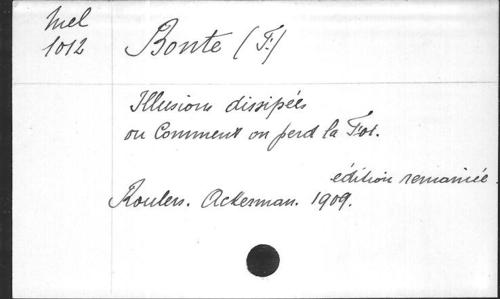 Mel
1012
Bonte (F.)
Illusions dissipées
ou Comment on perd la Foi.
édition remaniée.
Roulers. Ackerman. 1909.